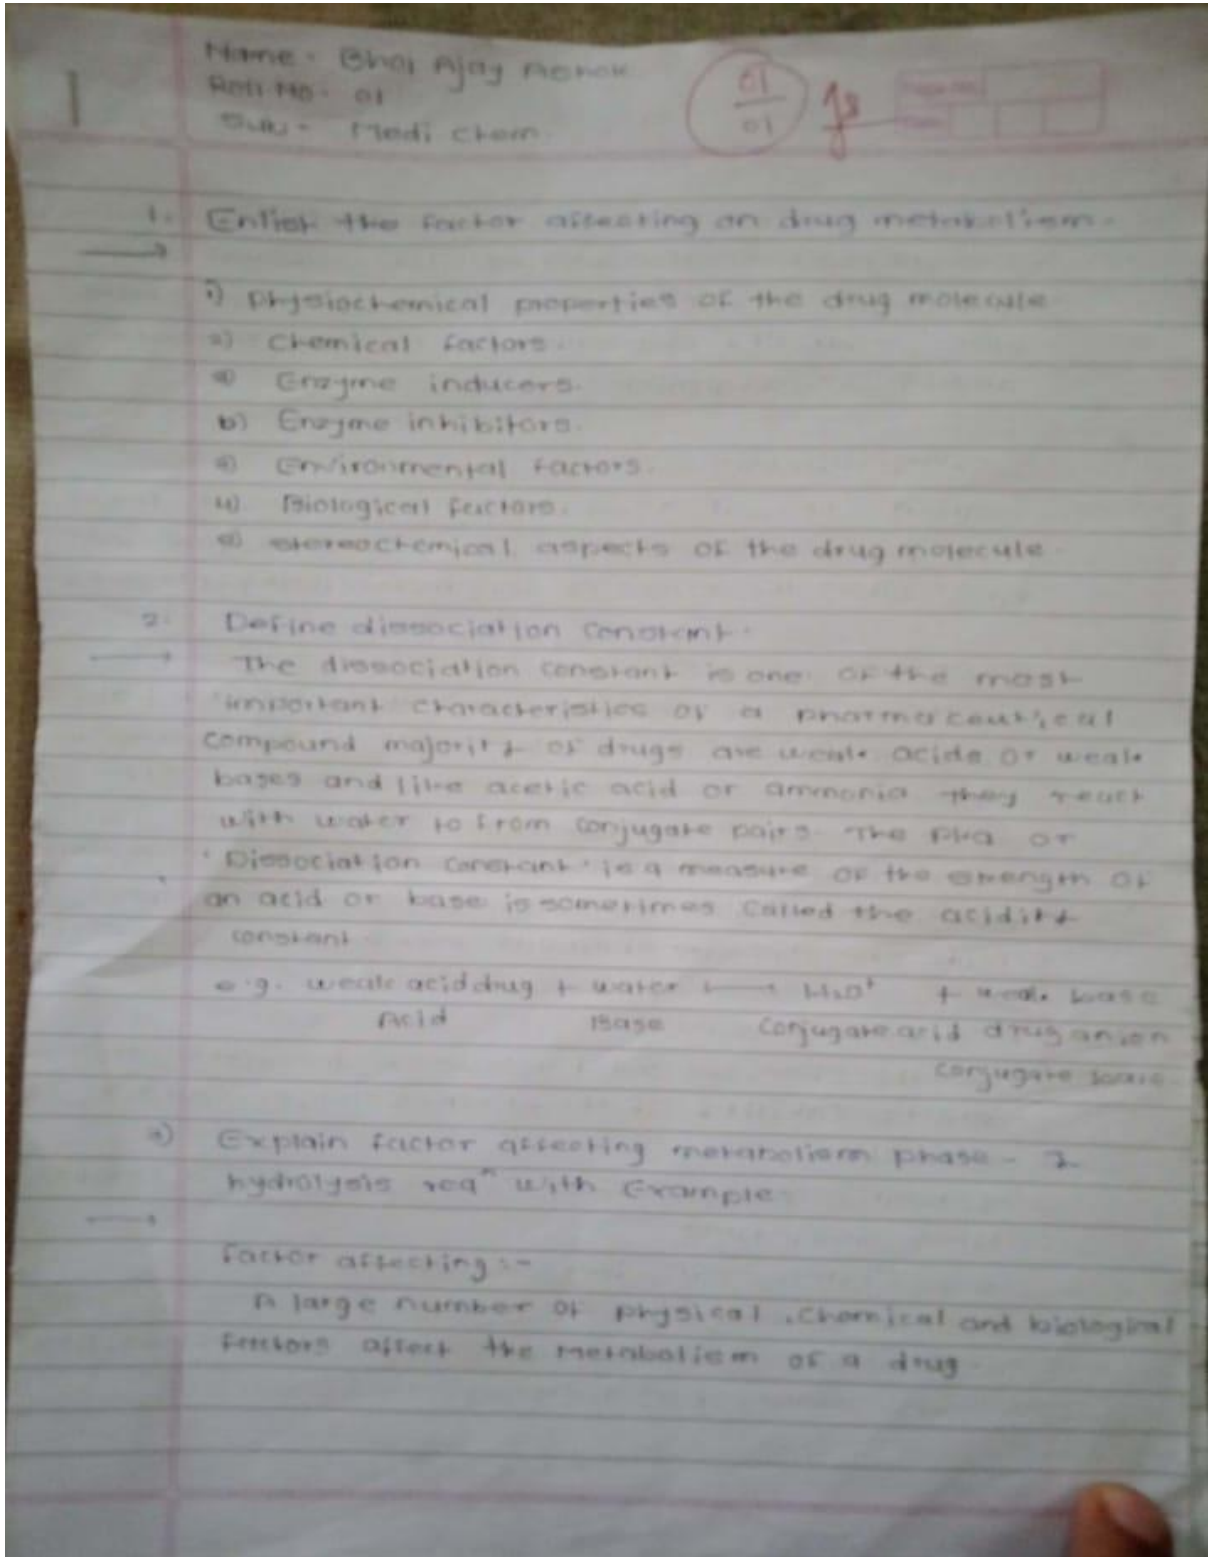 1
Name - Bhoi Ajay Ashok
Roll No - 01
Sub - Medi chem.
01
01
Page No.
Date
1. Enlist the factor affecting on drug metabolism.
1) physiochemical properties of the drug molecule
2) chemical factors.
a) Enzyme inducers.
b) Enzyme inhibitors.
3) Environmental factors.
4) Biological factors.
5) stereochemical aspects of the drug molecule.
2. Define dissociation constant.
The dissociation constant is one of the most
important characteristics of a pharmaceutical
compound majority of drugs are weak acids or weak
bases and like acetic acid or ammonia they react
with water to from conjugate pairs. The PKa or
'Dissociation constant' is a measure of the strength of
an acid or base is sometimes called the acidity
constant.
e.g. weak acid drug + water ⟷ H₃O⁺ + weak base
Acid Base conjugate acid drug anion
conjugate base
3) Explain factor affecting metabolism phase - I
hydrolysis reaⁿ with Example.
Factor affecting :-
A large number of physical, chemical and biological
factors affect the metabolism of a drug.